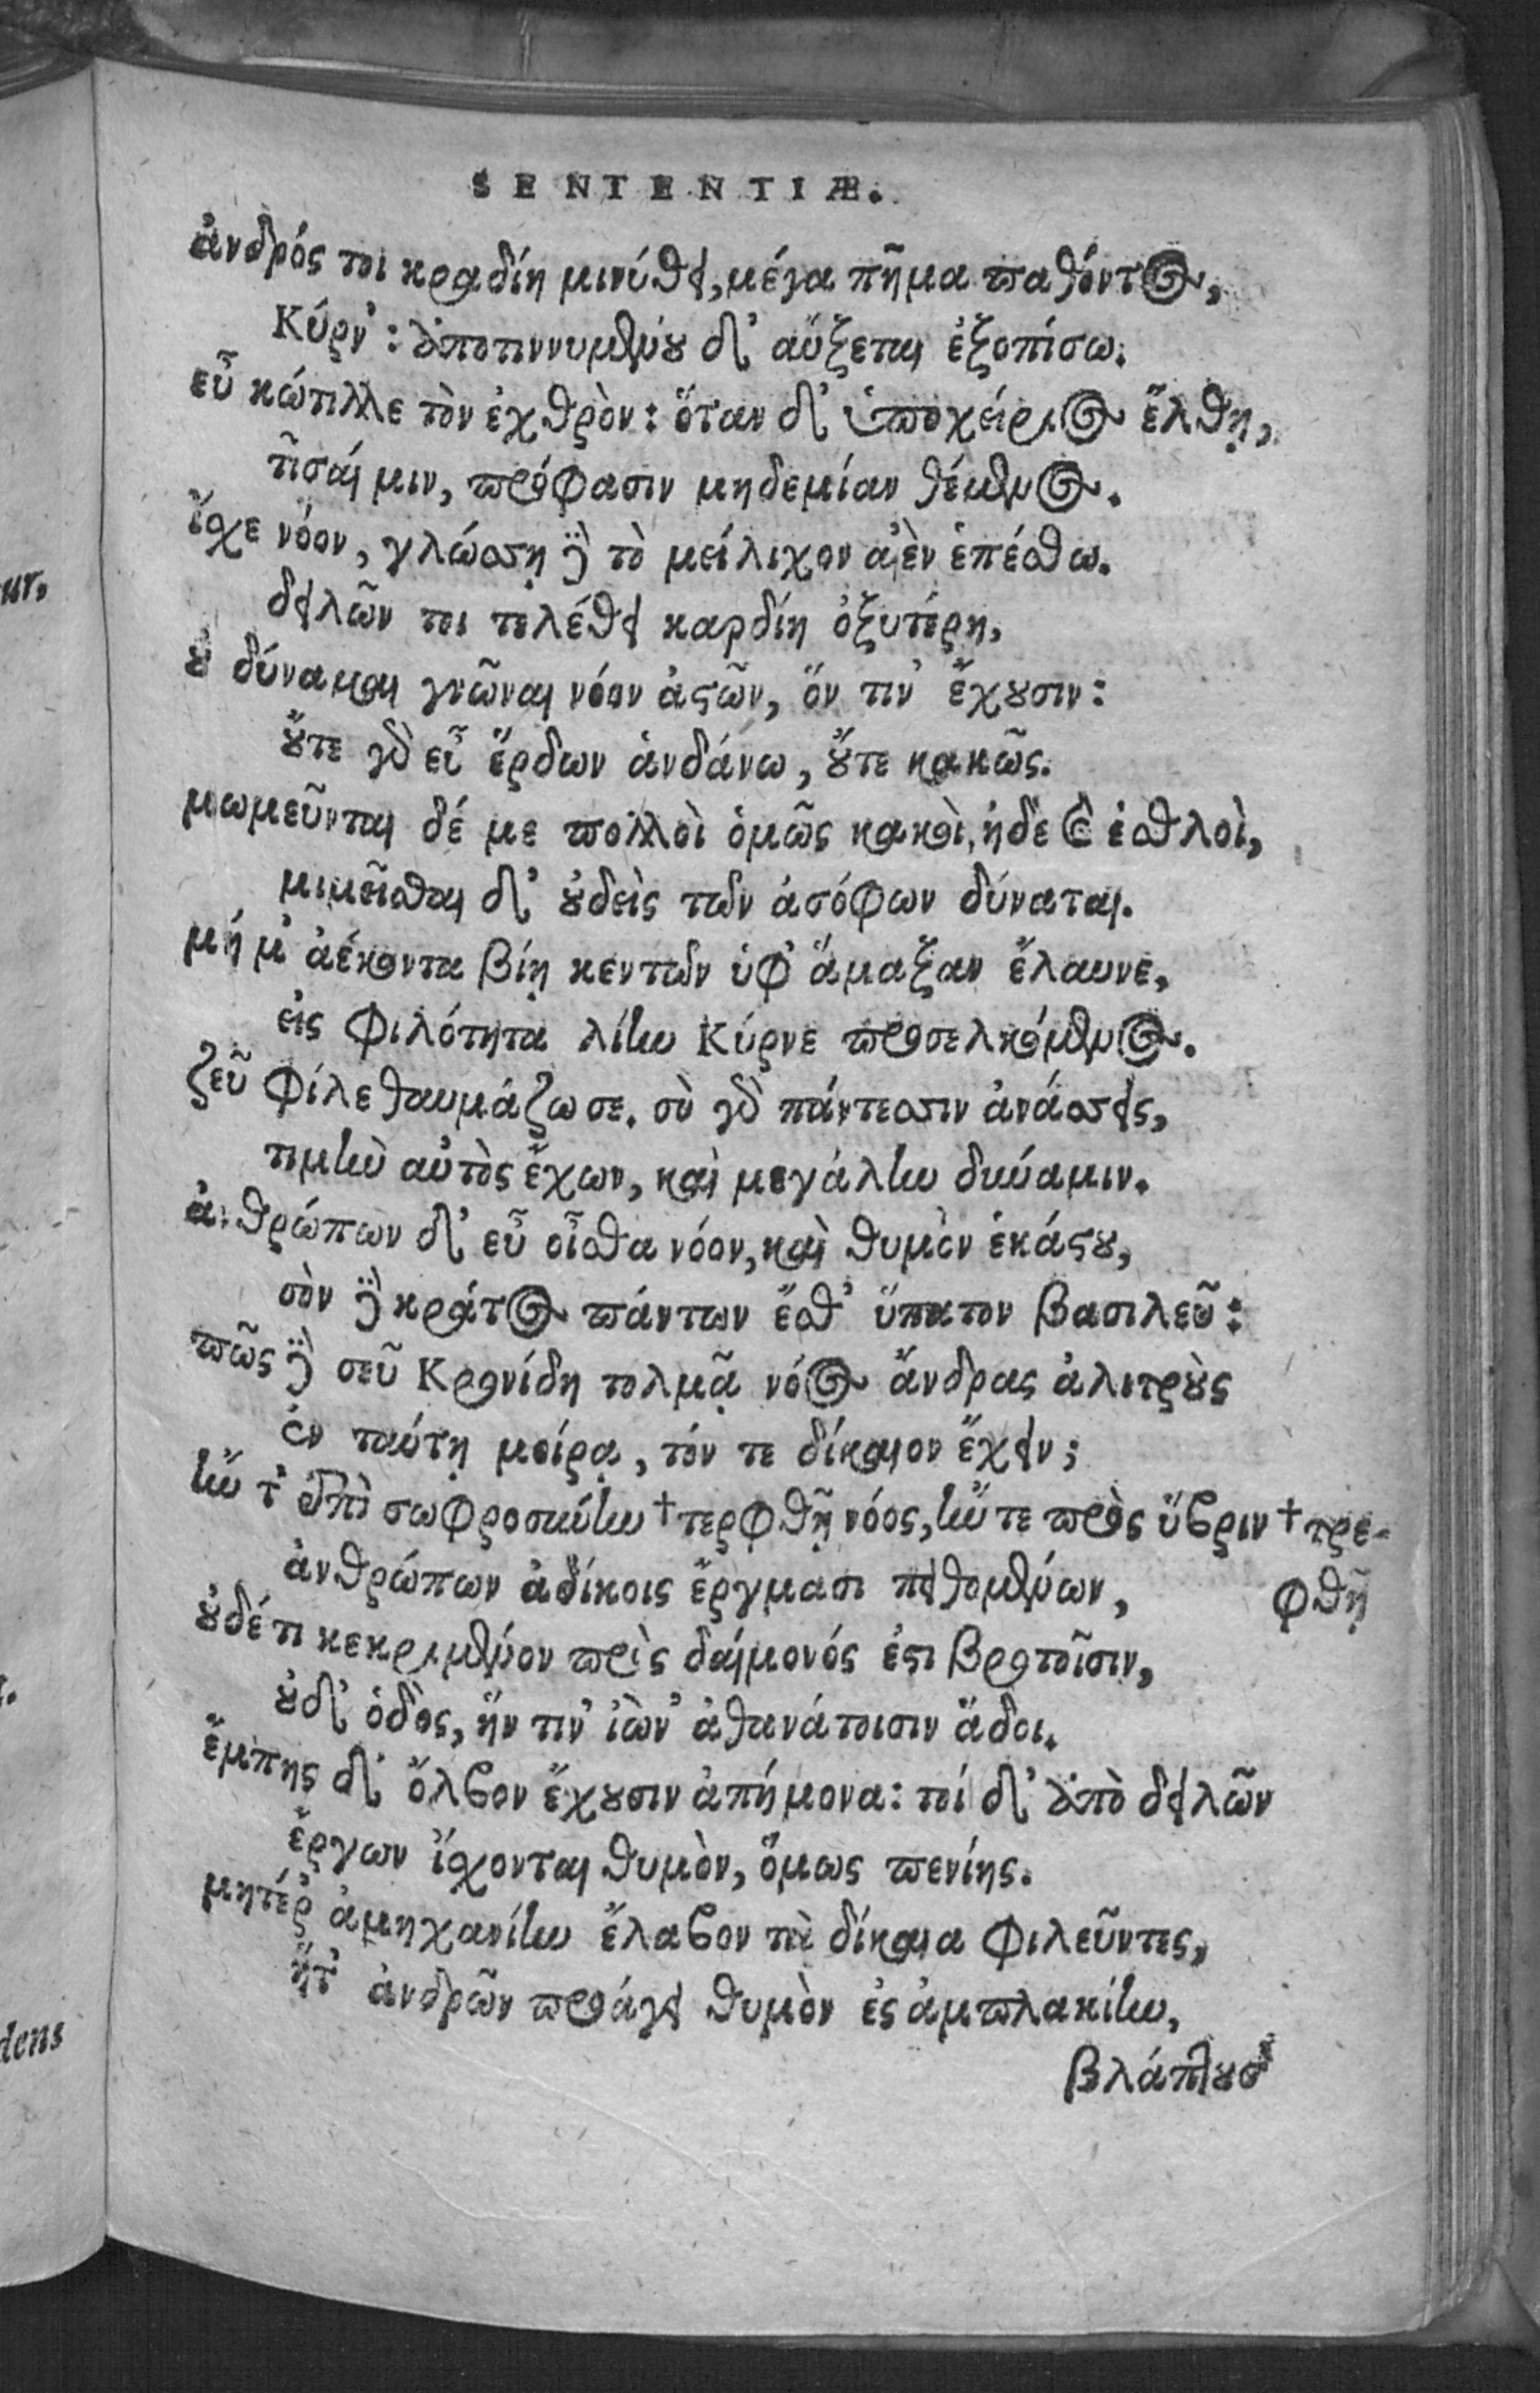 SENTENTIÆ.
ἀνδρός τοι κραδίη μινύθει, μέγα πῆμα παθόντος,
Κύρν᾽: ἀποτιννυμένου δ᾽ αὔξεται ἐξοπίσω.
εὖ κώτιλλε τὸν ἐχθρὸν: ὅταν δ᾽ ὑποχείριος ἔλθῃ,
τῖσαί μιν, πρόφασιν μηδεμίαν θέμενος.
ἴσχε νόον, γλώσσῃ δὲ τὸ μείλιχον αἰὲν ἐπέσθω.
δειλῶν τοι τελέθει καρδίη ὀξυτέρη,
οὐ δύναμαι γνῶναι νόον ἀστῶν, ὅν τιν᾽ ἔχουσιν:
οὔτε γὰρ εὖ ἔρδων ἁνδάνω, οὔτε κακῶς.
μωμεῦνται δέ με πολλοὶ ὁμῶς κακοὶ, ἠδὲ καὶ ἐσθλοὶ,
μιμεῖσθαι δ᾽ οὐδεὶς τῶν ἀσόφων δύναται.
μή μ᾽ ἀέκοντα βίῃ κεντῶν ὑφ᾽ ἅμαξαν ἔλαυνε,
εἰς φιλότητα λίην Κύρνε προσελκόμενος.
ζεῦ φίλε θαυμάζω σε. σὺ γὰρ πάντεσσιν ἀνάσσεις,
τιμὴν αὐτὸς ἔχων, καὶ μεγάλην δύναμιν.
ἀνθρώπων δ᾽ εὖ οἶσθα νόον, καὶ θυμὸν ἑκάστου,
σὸν δὲ κράτος πάντων ἔσθ᾽ ὕπατον βασιλεῦ:
πῶς δὲ σεῦ Κρονίδη τολμᾷ νόος ἄνδρας ἀλιτροὺς
ἐν ταύτῃ μοίρᾳ, τόν τε δίκαιον ἔχειν;
ἤν τ᾽ ἐπὶ σωφροσύνην † τερφθῇ νόος, ἤν τε πρὸς ὕβριν † τρε-
ἀνθρώπων ἀδίκοις ἔργμασι πειθομένων, φθῇ
οὐδέ τι κεκριμένον πρὸς δαίμονός ἐστι βροτοῖσιν,
οὐδ᾽ ὁδὸς, ἥν τιν᾽ ἰὼν ἀθανάτοισιν ἅδοι.
ἔμπης δ᾽ ὄλβον ἔχουσιν ἀπήμονα: τοὶ δ᾽ ἀπὸ δειλῶν
ἔργων ἴσχονται θυμὸν, ὅμως πενίης.
μητέρ᾽ ἀμηχανίην ἔλαβον τὰ δίκαια φιλεῦντες,
ἥτ᾽ ἀνδρῶν προάγει θυμὸν ἐς ἀμπλακίην,
βλάπτουσ᾽
dens